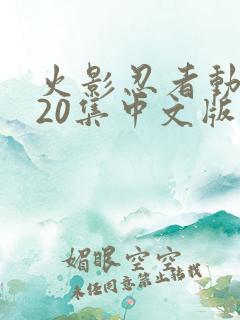 火影忍者動
20集中文版
媚眼空空
未经同意禁止转载